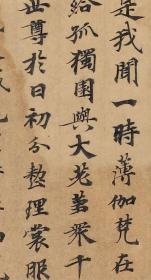 是我聞一時薄伽梵在
給孤獨園與大苾蒭衆千
世尊於日初分整理裳服